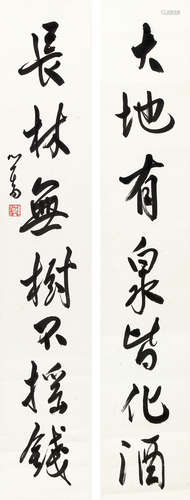 大地有泉皆化酒
長林無樹不搖錢
心畬